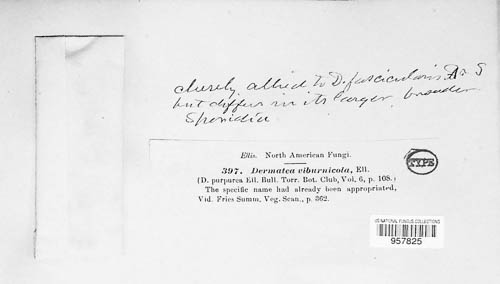 closely allied to D. fascicularis A & S
but differs in its larger, broader
Sporidia
Ellis. North American Fungi.
397. Dermatea viburnicola, Ell.
(D. purpurea Ell. Bull. Torr. Bot. Club, Vol. 6, p. 108.)
The specific name had already been appropriated,
Vid. Fries Summ, Veg. Scan., p. 362.
TYPE
US NATIONAL FUNGUS COLLECTIONS
957825